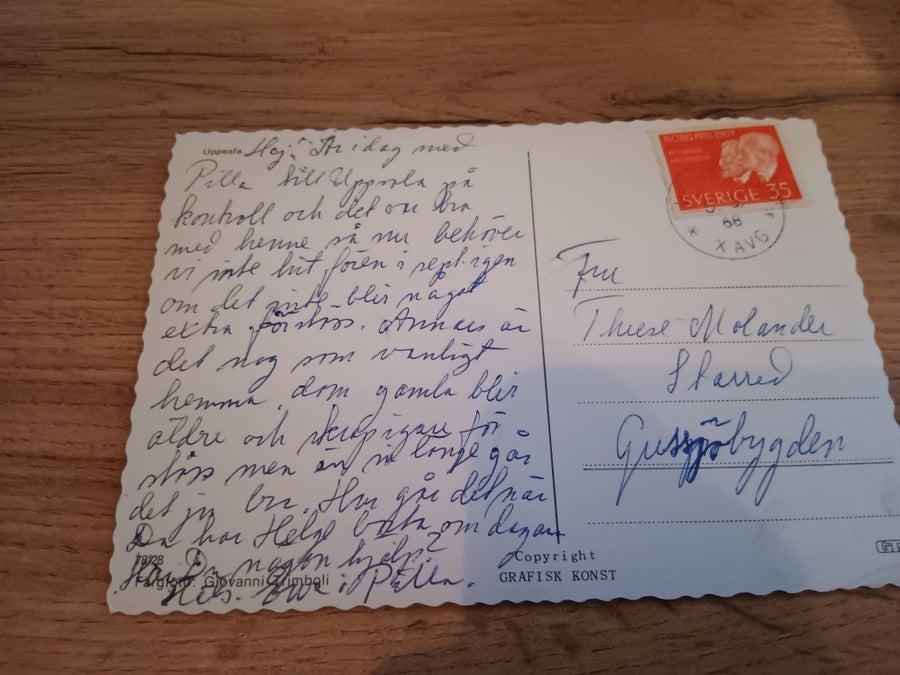 Uppsala
Hej! Är idag med
Pilla till Uppsala på
kontroll och det var bra
med henne så nu behöver
vi inte hit förän i sept. igen
om det inte blir något
extra förstöss. Annars är
det nog som vanligt
hemma, dom gamla blir
äldre och skröpigare för
stöss men än så länge går
det ju bra. Hur går det när
Du har Helge borta om dagarna
Har Du någon hjälp?
Häls. Eva i Pilla.
73/28
Färgfoto: Giovanni Trimboli
Copyright
GRAFISK KONST
NOBELPRIS 1907
SVERIGE 35
68
X AVG
Fru
Therese Molander
Starred
Gussjöbygden